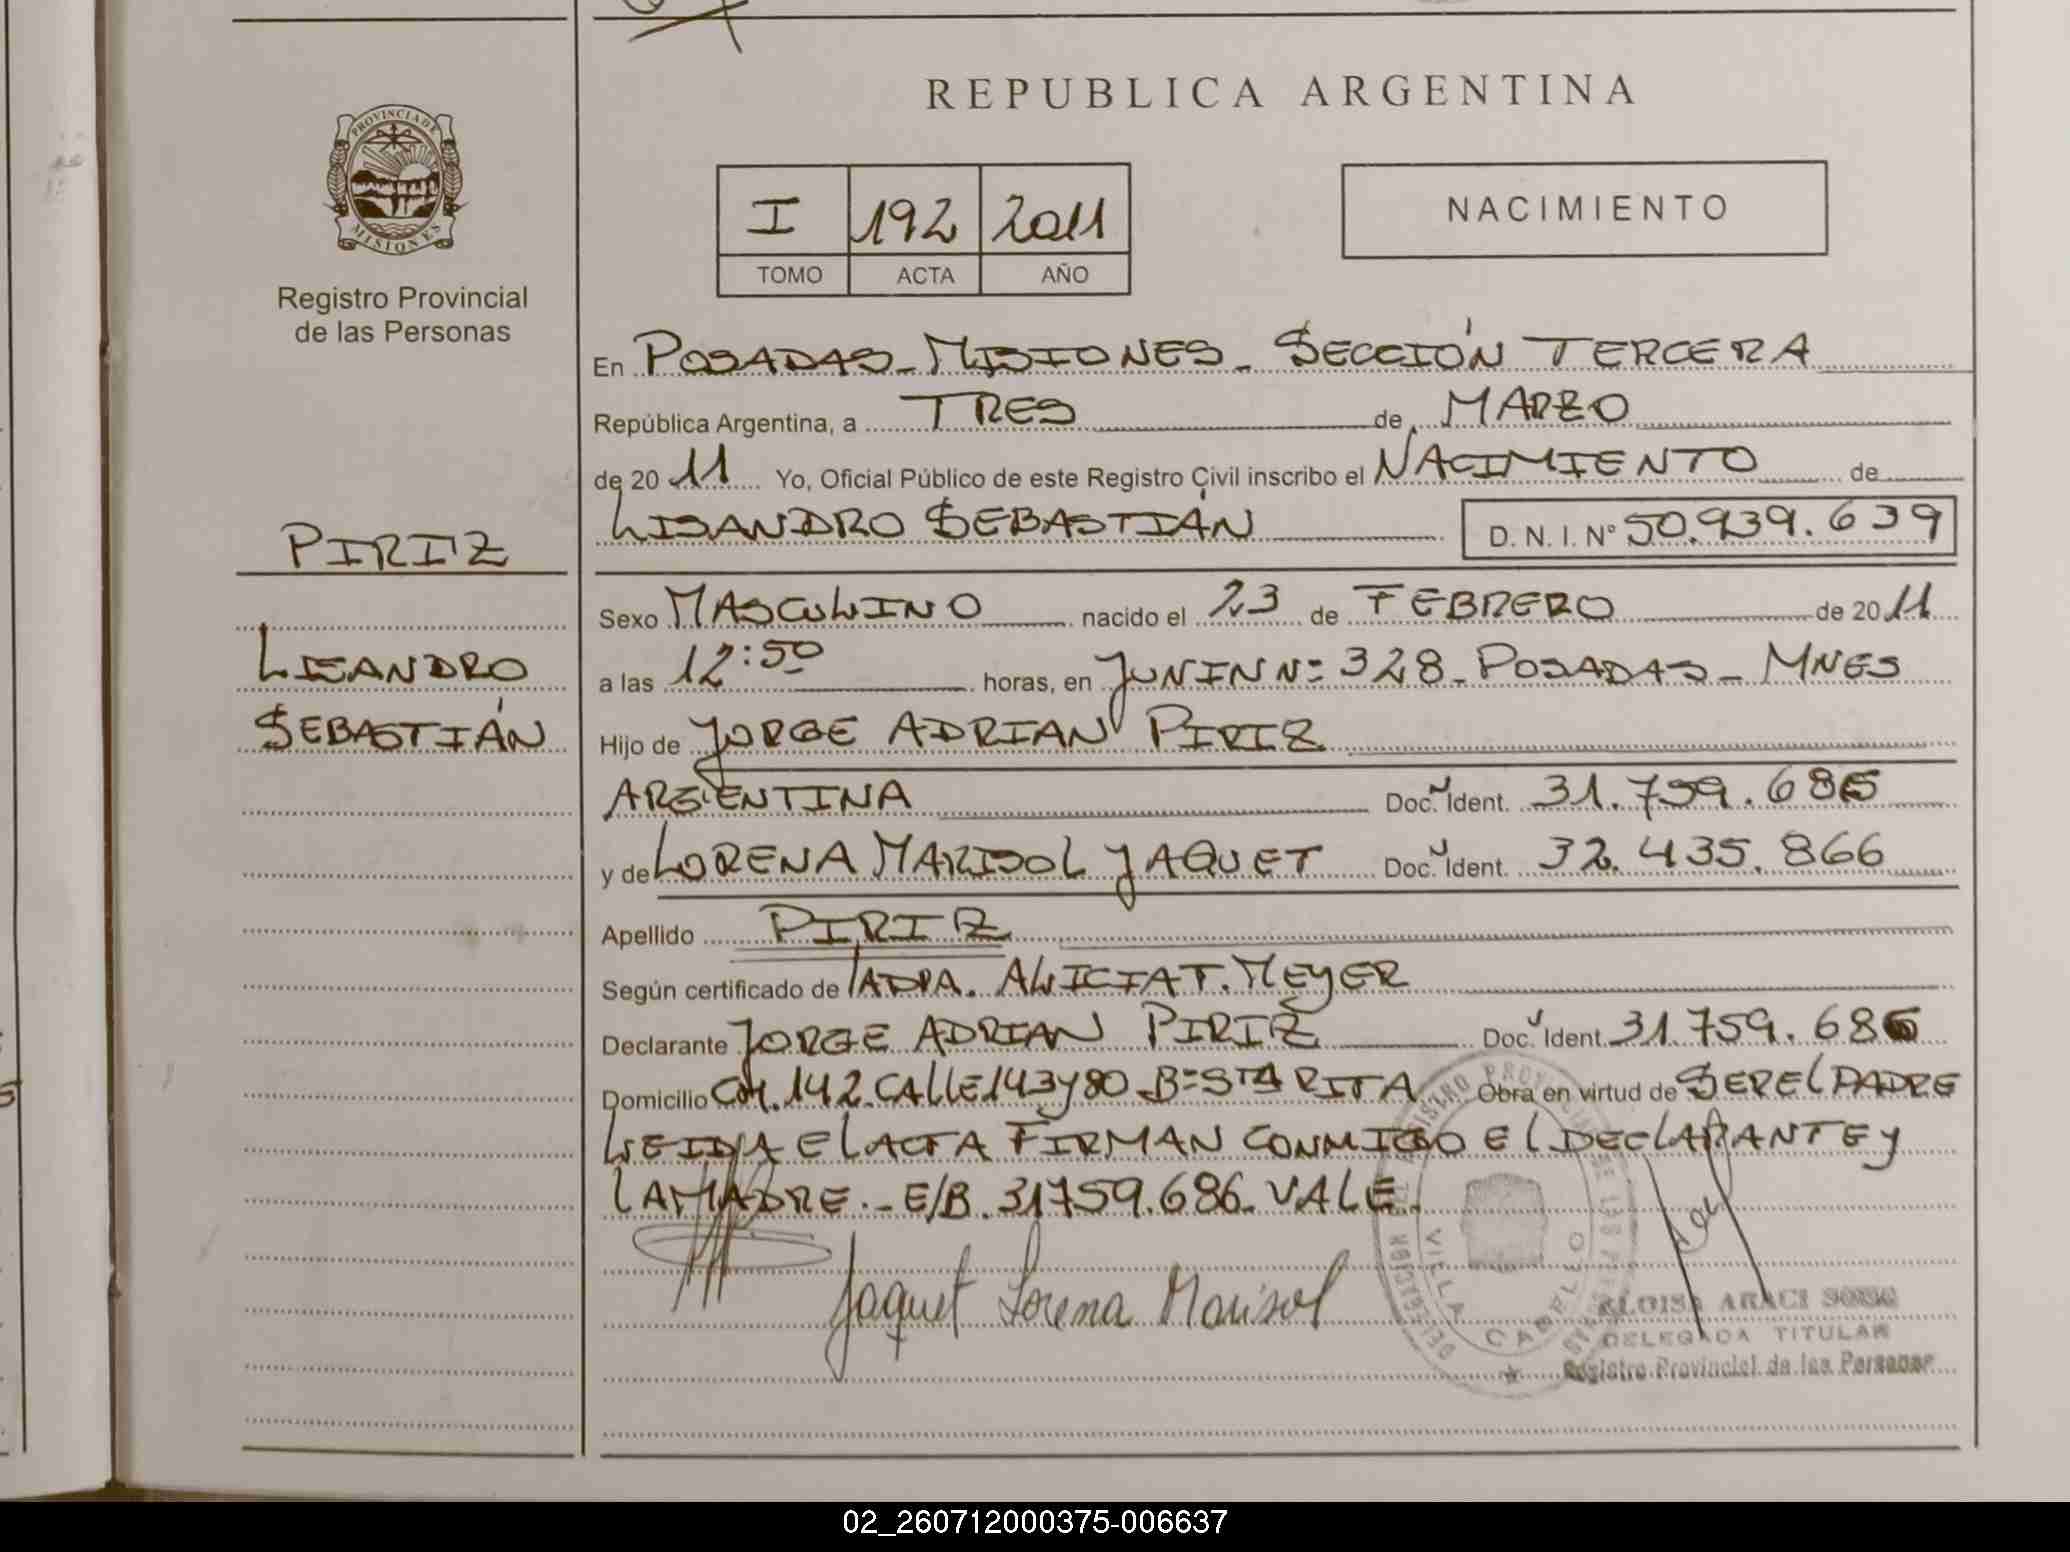 REPUBLICA ARGENTINA
PROVINCIA DE
MISIONES
Registro Provincial
de las Personas
I 192 2011
TOMO ACTA AÑO
NACIMIENTO
En POSADAS - MISIONES - SECCIÓN TERCERA
República Argentina, a TRES de MARZO
de 20 11 Yo, Oficial Público de este Registro Civil inscribo el NACIMIENTO de
LISANDRO SEBASTIÁN D. N. I. Nº 50.939.639
PIRIZ
LISANDRO
SEBASTIÁN
Sexo MASCULINO nacido el 23 de FEBRERO de 20 11
a las 12:50 horas, en JUNIN Nº 328 - POSADAS - MNES
Hijo de JORGE ADRIAN PIRIZ
ARGENTINA Doc. Ident. 31.759.686
y de LORENA MARISOL JAQUET Doc. Ident. 32.435.866
Apellido PIRIZ
Según certificado de ALICIA T. MEYER
Declarante JORGE ADRIAN PIRIZ Doc. Ident. 31.759.686
Domicilio CH. 142 CALLE 143 y 80 - Bº STA RITA Obra en virtud de SER EL PADRE
LEIDA EL ACTA FIRMAN CONMIGO EL DECLARANTE y
LA MADRE. - E/B. 31759.686. VALE.
Jaquet Lorena Marisol
VILLA CABELLO
ARACI
DELEGADA TITULAR
Registro Provincial de las Personas
02_260712000375-006637